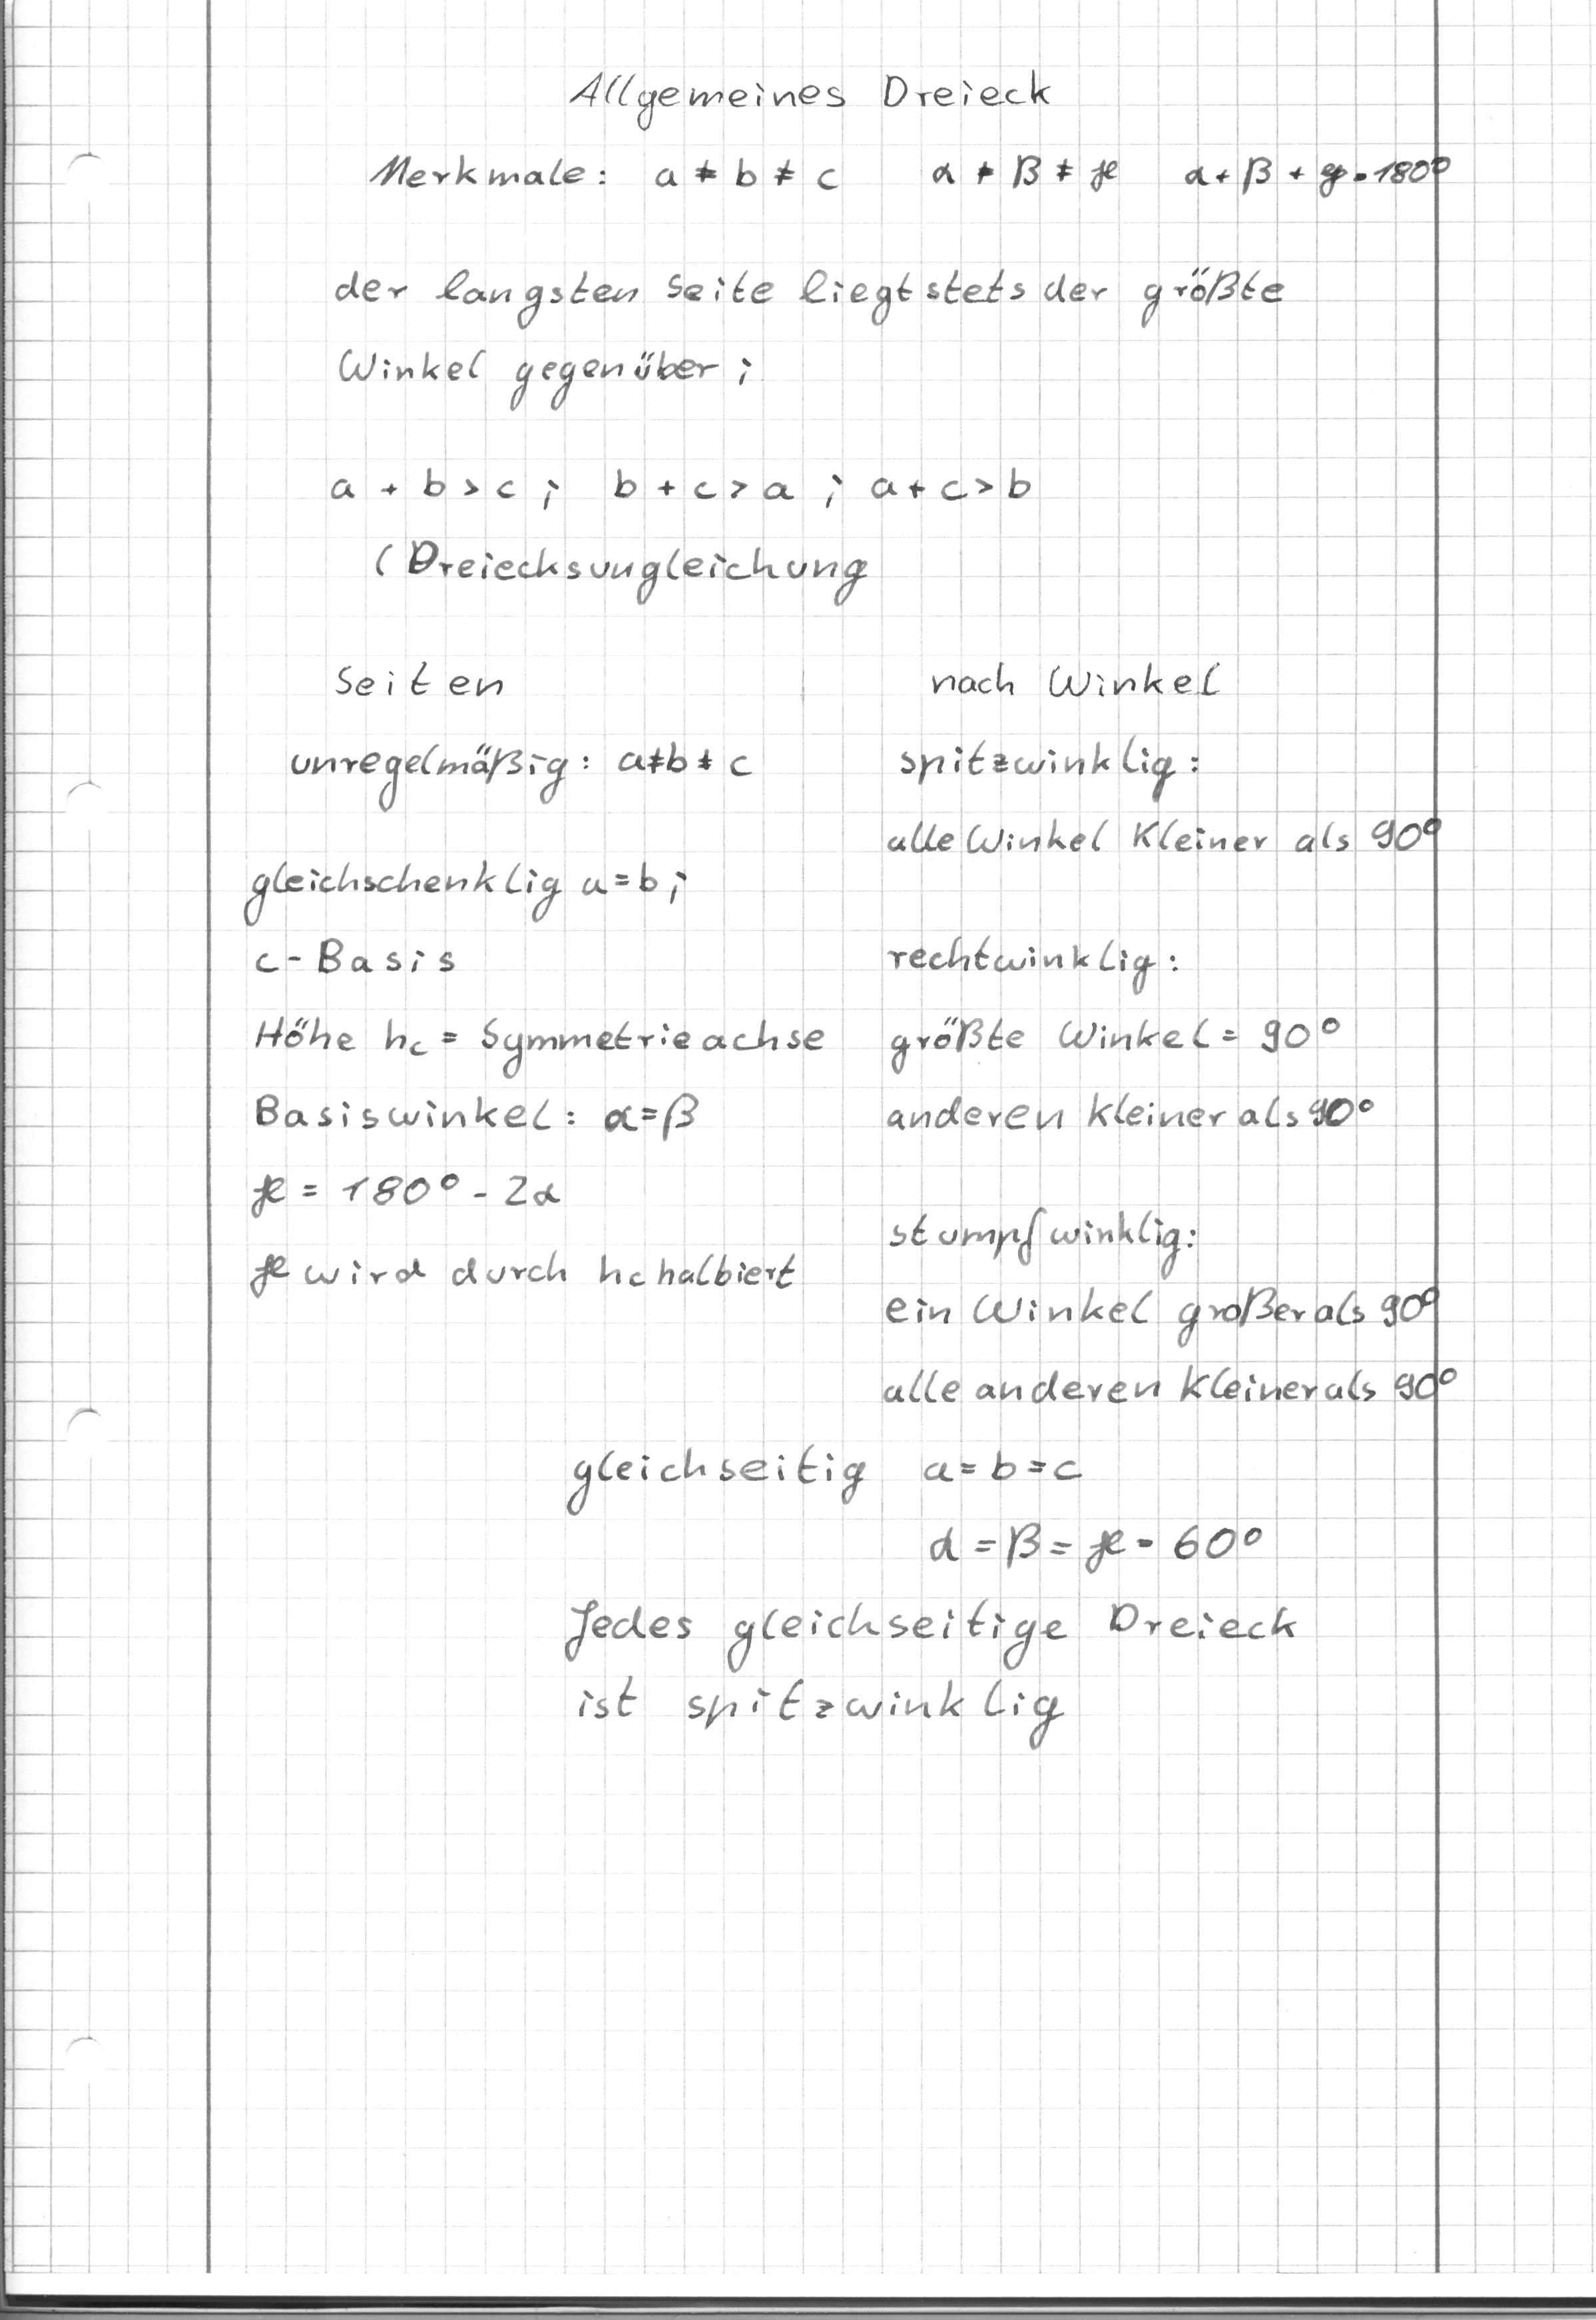 Allgemeines Dreieck
Merkmale: a ≠ b ≠ c α ≠ β ≠ γ α + β + γ = 180°
der langsten Seite liegt stets der größte
Winkel gegenüber;
a + b > c ; b + c > a ; a + c > b
(Dreiecksungleichung
Seiten
unregelmäßig: a≠b≠c
gleichschenklig a=b;
c-Basis
Höhe hc = Symmetrieachse
Basiswinkel: α=β
γ = 180° - 2α
γ wird durch hc halbiert
nach Winkel
spitzwinklig:
alle Winkel kleiner als 90°
rechtwinklig:
größte Winkel = 90°
anderen kleiner als 90°
stumpfwinklig:
ein Winkel großer als 90°
alle anderen kleiner als 90°
gleichseitig a = b = c
α = β = γ = 60°
Jedes gleichseitige Dreieck
ist spitzwinklig